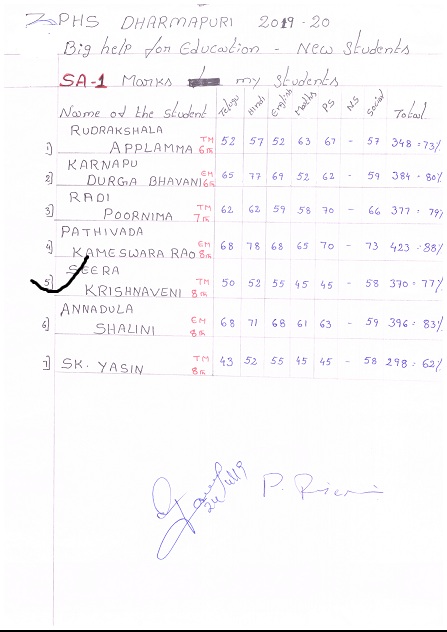 ZPHS DHARMAPURI 2019-20
Big help for Education - New Students
SA-1 Marks my students
Name of the Student Telugu Hindi English Maths PS NS Social Total
1) RUDRAKSHALA
APPLAMMA TM 6th 52 57 52 63 67 - 57 348 = 73%
2) KARNAPU
DURGA BHAVANI EM 6th 65 77 69 52 62 - 59 384 = 80%
3) RADI
POORNIMA TM 7th 62 62 59 58 70 - 66 377 = 79%
4) PATHIVADA
KAMESWARA RAO EM 8th 68 78 68 65 70 - 73 423 = 88%
5) SEERA
KRISHNAVENI TM 8th 50 52 55 45 45 - 58 370 = 77%
6) ANNADULA
SHALINI EM 8th 68 71 68 61 63 - 59 396 = 83%
7) SK. YASIN TM 8th 43 52 55 45 45 - 58 298 = 62%